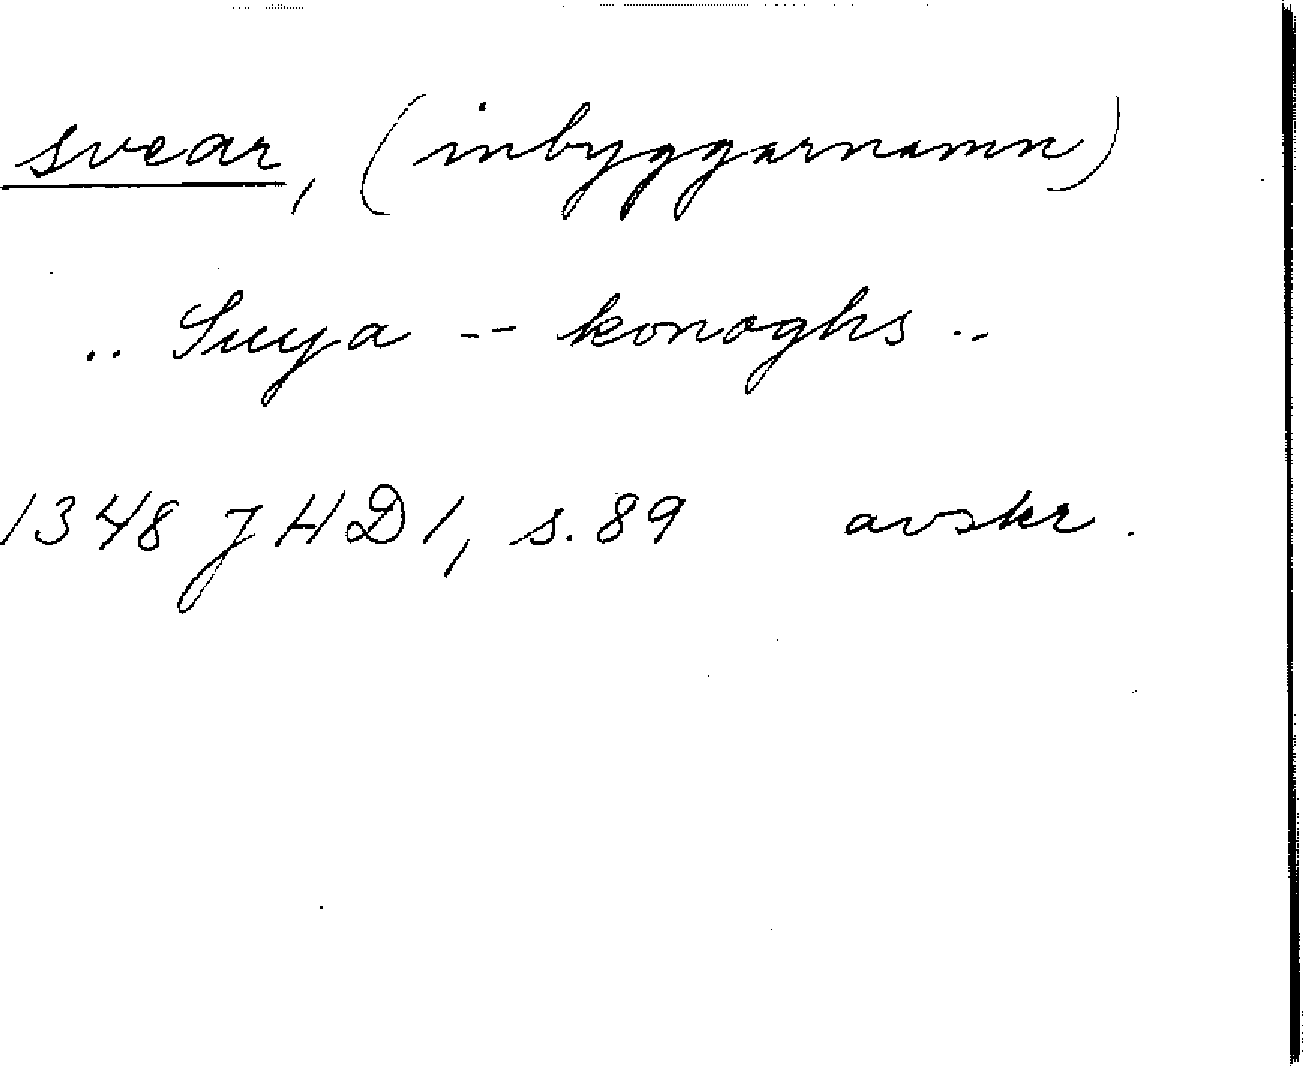 svear, (inbyggarnamn)
.. Suya -- konoghs ..
1348 JHD 1, s. 89 avskr.